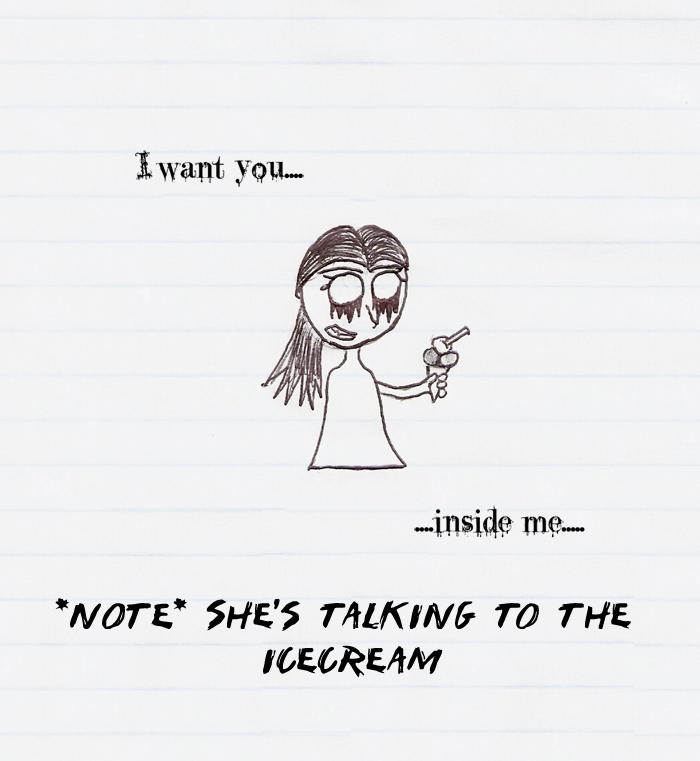 I want you....
....inside me.....
*NOTE* SHE'S TALKING TO THE
ICECREAM